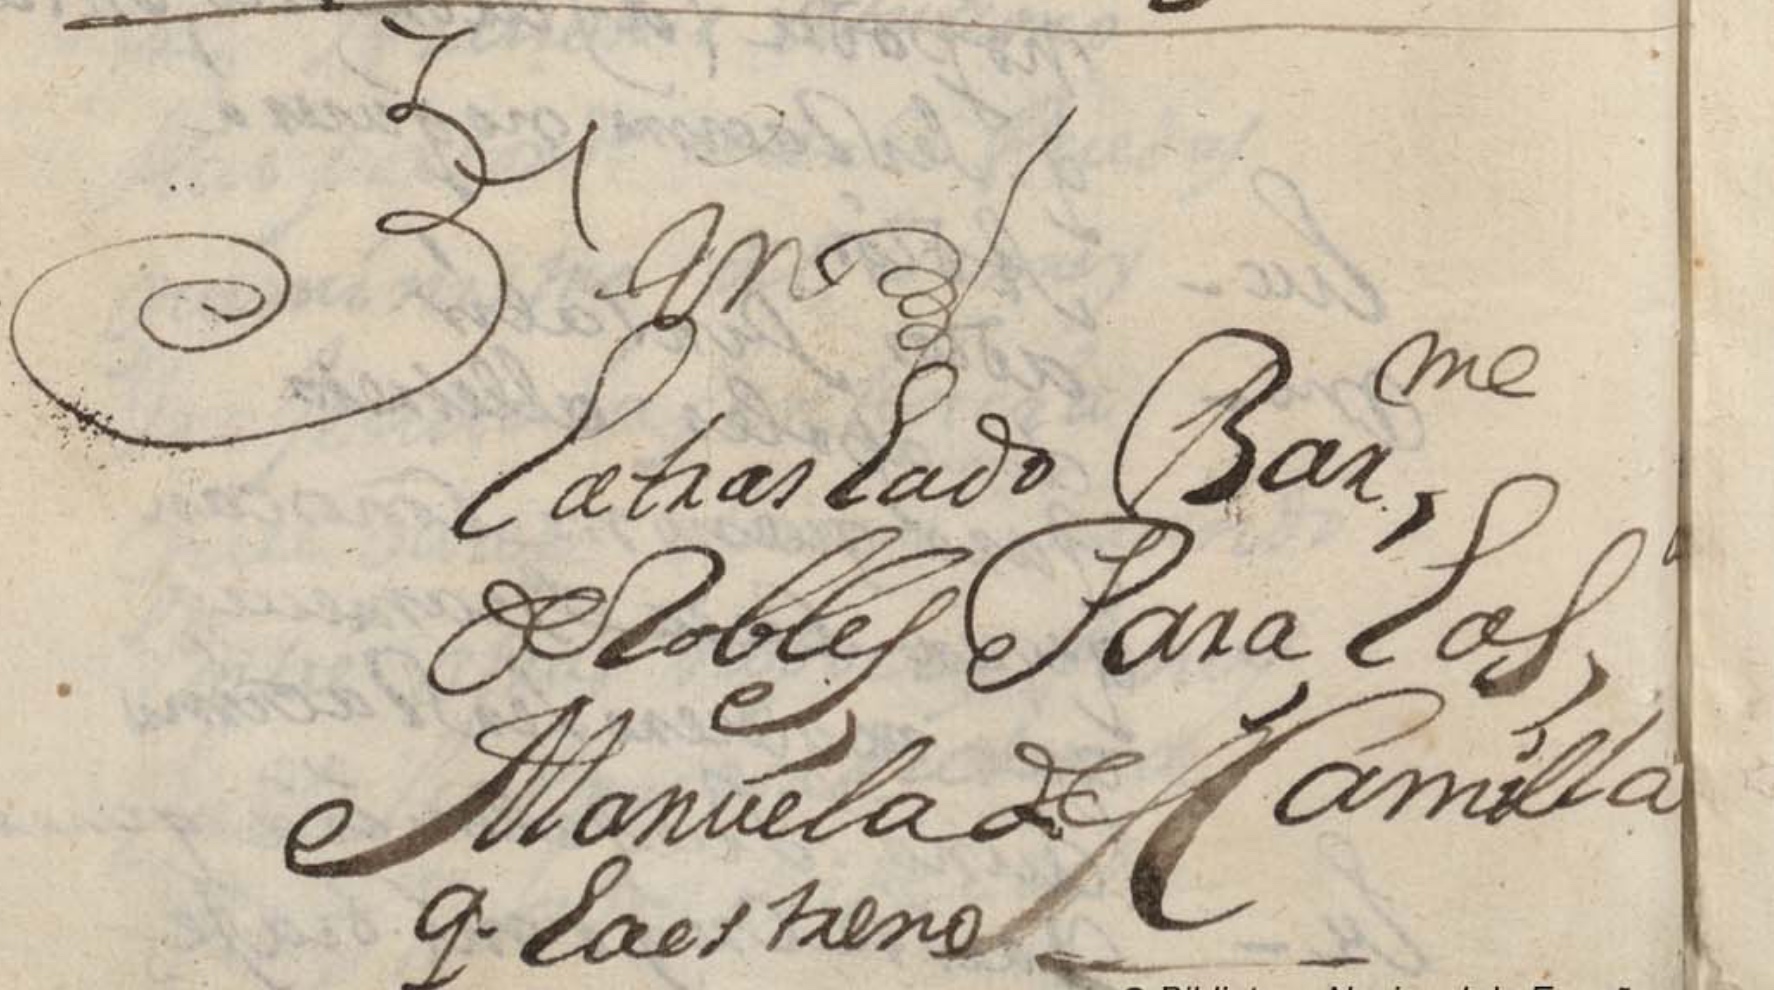 Fin
La traslado Bar,me
de Robles Para La S,a
Manuela de Escamilla
q. la estreno
© Biblioteca Nacional de España